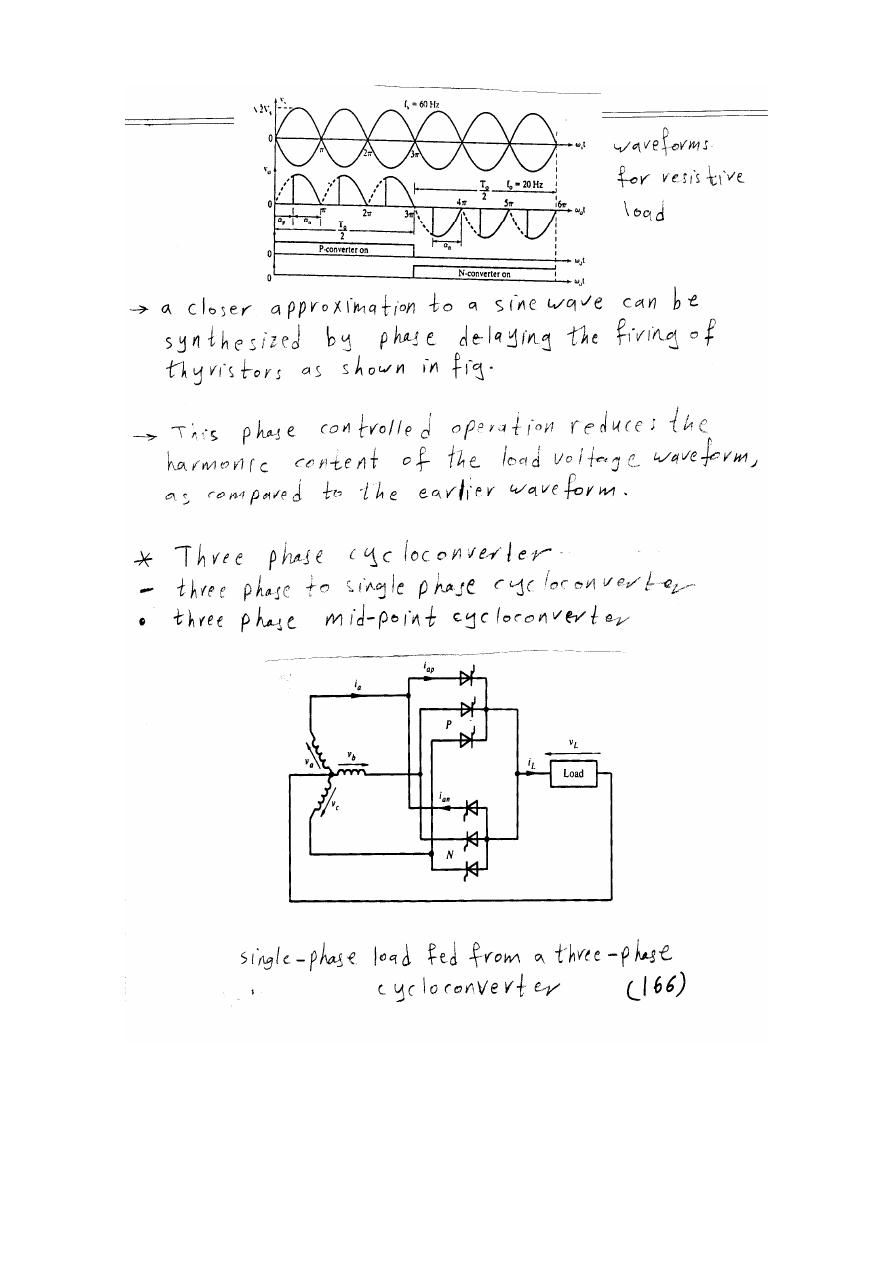 √2Vs
vs
fs = 60 Hz
0
π
2π
3π
ωst
waveforms
for resistive
load
vo
To/2 fo = 20 Hz
0
π
2π
3π
4π
5π
6π
ωot
αp
αn
To/2
αn
0
P-converter on
ωot
0
N-converter on
ωot
→ a closer approximation to a sine wave can be
synthesized by phase delaying the firing of
thyristors as shown in fig.
→ This phase controlled operation reduces the
harmonic content of the load voltage waveform,
as compared to the earlier waveform.
* Three phase cycloconverter
- three phase to single phase cycloconverter
• three phase mid-point cycloconverter
ia
iap
P
va
vb
vc
ian
N
iL
vL
Load
single-phase load fed from a three-phase
cycloconverter (166)